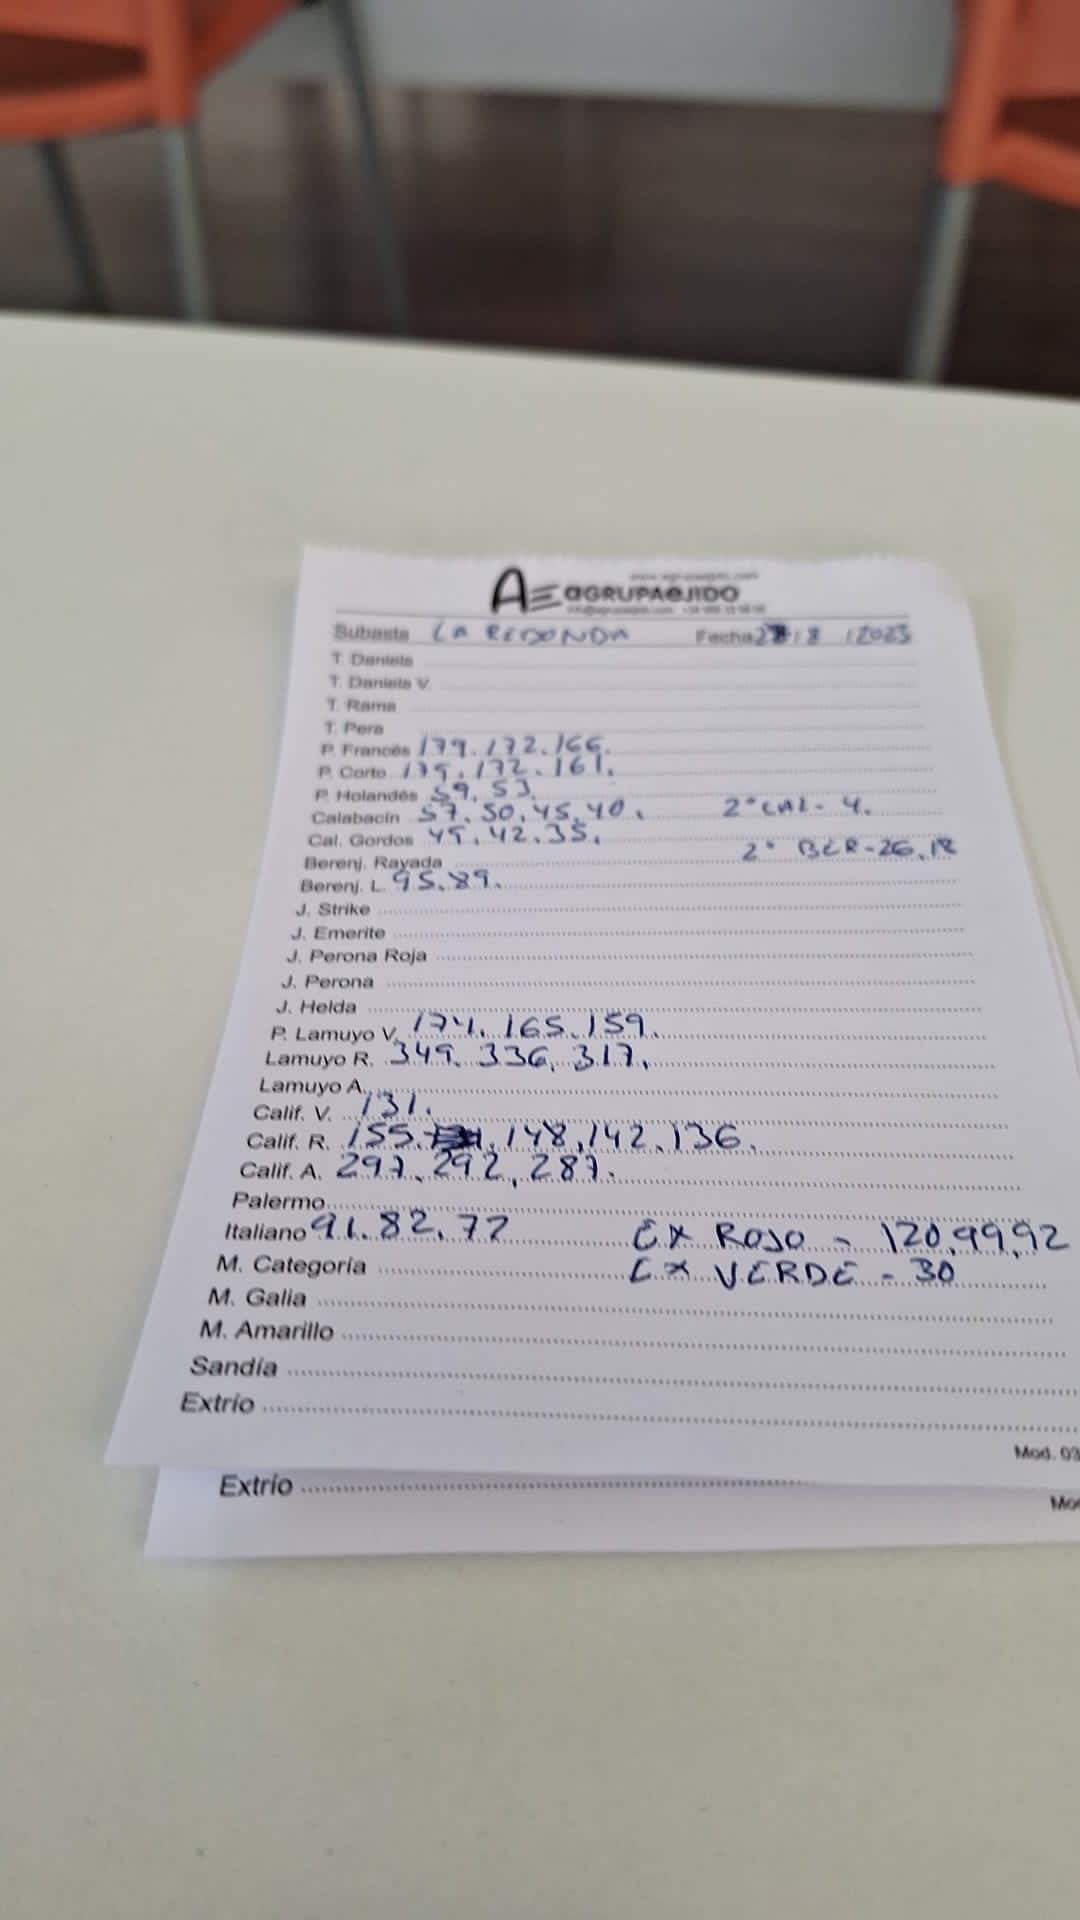 AE aGRUPAeJIDO
Subasta LA REDONDA Fecha /8 /2023
T. Daniela
T. Daniela V.
T. Rama
T. Pera
P. Francés 179.172.166.
P. Corto 175.172.161.
P. Holandés 59.53.
Calabacín 57.50.45.40. 2º CAL- 4.
Cal. Gordos 45.42.35.
Berenj. Rayada 2º BER-26.18
Berenj. L. 95.89.
J. Strike
J. Emerite
J. Perona Roja
J. Perona
J. Helda
P. Lamuyo V. 174. 165.159.
Lamuyo R. 349. 336. 317.
Lamuyo A.
Calif. V. 131.
Calif. R. 155. 148,142.136.
Calif. A. 297.292.287.
Palermo
Italiano 91.82.77 EX ROJO - 120.99.92
M. Categoría EX VERDE - 30
M. Galia
M. Amarillo
Sandía
Extrío
Mod. 03
Extrío